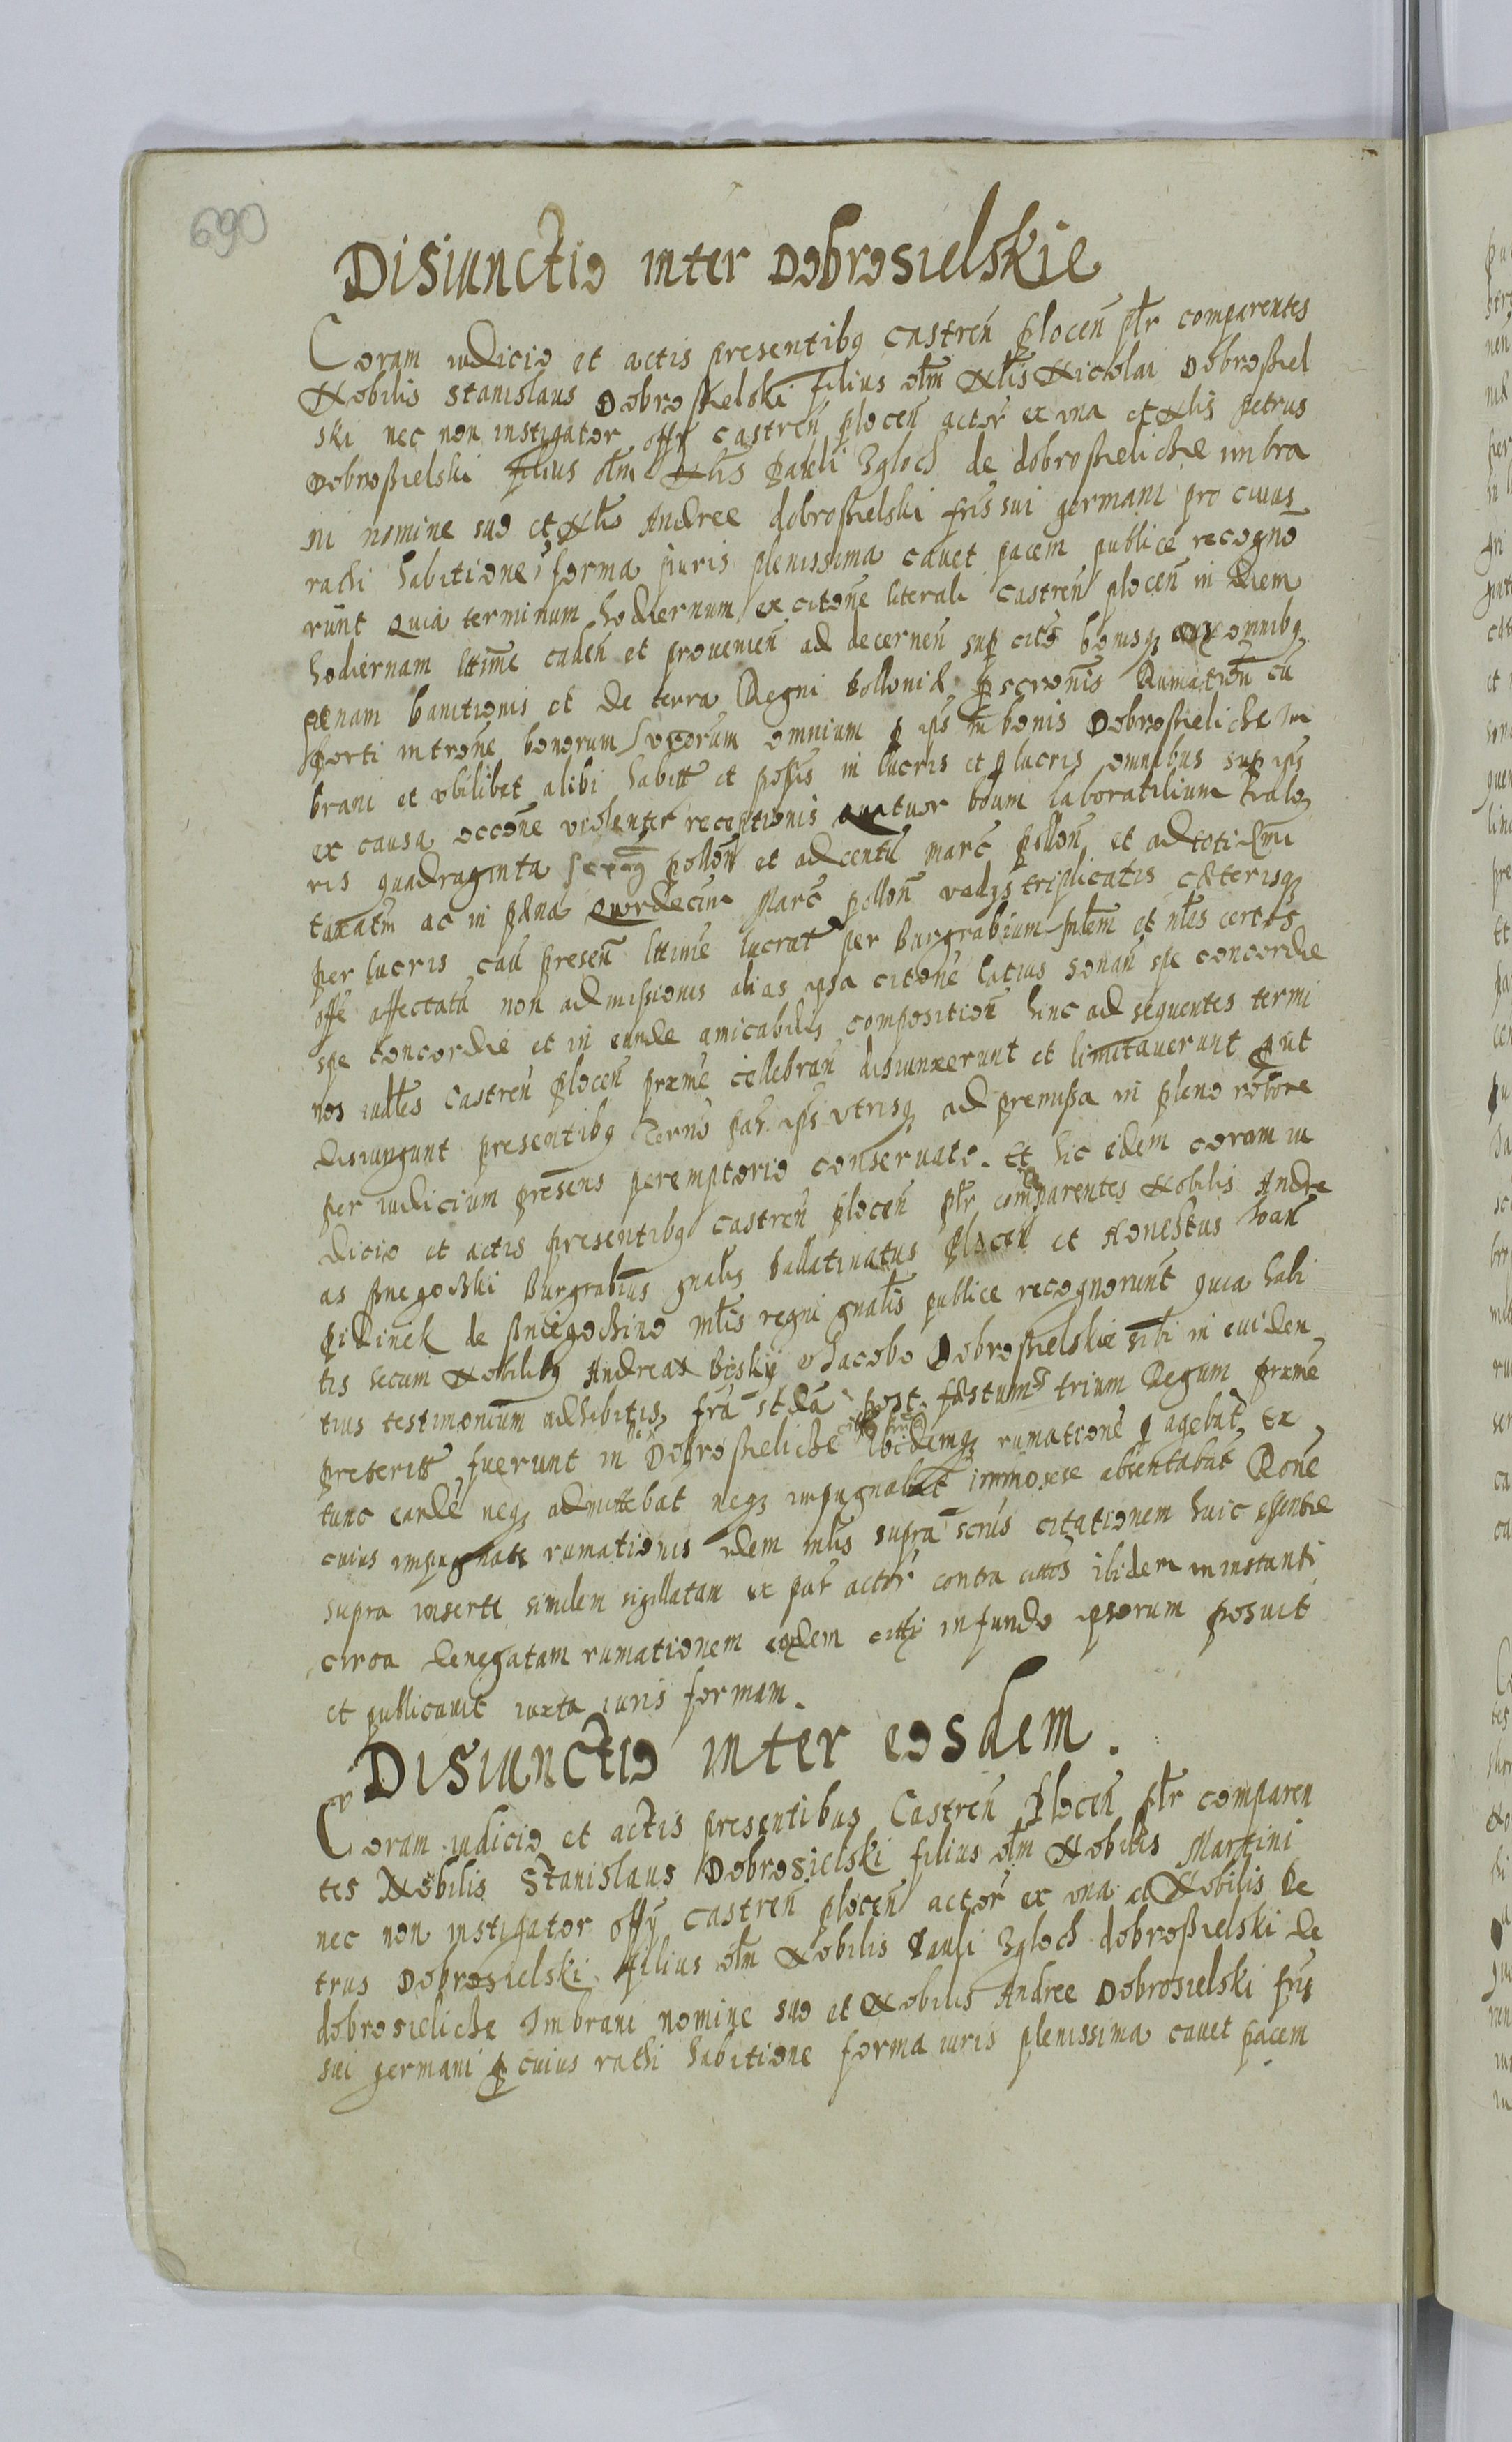 690
Disiunctio inter Dobrosielskie
Coram iudicio et actis presentibꝫ castren̄ plocen̄ pƚr comparentes
Nobilis Stanislaus Dobroßielski filius oƚm Nƚis Nicolai Dobroßiel
ski nec non instigator offy castren̄ plocen̄ actor̄ ex vna et Nƚis Petrus
Dobroßielski filius oƚm Nƚis Pauli Zgloch de dobroßieliche imbra
ni nomine suo et Nƚis Andree dobroßielski fris sui germani pro cuius
rathi habitione forma iuris plenissima cauet pacem publice recogno
runt quia terminum hodiernum ex citōne literali castren̄ plocen̄ in diem
hodiernam lttime caden̄ et prouenien̄ ad decernen̄ sup cito bonisqꝫ omnibꝫ
penam banitionis et de terra Regni Polloniæ Rumation̄ cū
forti introne bonorum omnium ips in bonis Dobroßieliche im
brani et vbilibet alibi habitt et poßis in lucris et lucris omnibus sup ips
ex causa occone violente receptionis quatuor boum laboratilium valo
ris quadraginta pollon̄ et ad centū marc pollon̄ et ad toti
taxatm ac in pæna marc pollon̄ vadys triplicatis cæterisqꝫ
per lucris cau presen̄ lttime lucrat per Burgrabium et nƚes certos
offe affectatū non admissionis alias ipsa citone latius sonan̄ spe concordie
spe concordie et in eande amicabilis composition̄ hinc ad sequentes termi
nos castren̄ plocen̄ prxme cellebran̄ disiunxerunt et limitauerunt put
disiungunt presentibꝫ terno par ips vtrisqꝫ ad premissa in pleno robore
per iudicium presens peremptorio conseruato. Et hic idem coram iu
dicio et actis presentibꝫ castren̄ plocen̄ pƚr comparentes Nobilis Andre
as Burgrabius gnalis Pallatinatus plocen̄ et Honestus Ioan̄
Pidinek de mƚis regni gnalis publice recognorunt quia habi
tis secum Nobilibꝫ Andrea et Iacobo Dobroßielskie sibi in euiden
tius testimonium adhibitis, fra post festum trium Regum prxme
preteritt fuerunt in Dobroßieliche ibidemqꝫ rumatione agebat, Ex
tunc eandē neqꝫ admittebat neqꝫ impugnabat immo sese absentabat Rone
cuius impugnate rumationis idem mƚis supra scrus citationem huic essentie
supra inserte similem sigillatam ex par actor̄ contra cittos ibidem in instanti
circa denegatam rumationem eodem in fundo ipsorum posuit
et publicauit iuxta iuris formam.
Disiunctio inter eosdem.
Coram iudicio et actis presentibus Castren̄ Plocen̄ pƚr comparen
tes Nobilis Stanislaus Dobrosielski filius oƚm Nobilis Martini
nec non instigator offy castren̄ plocen̄ actor̄ ex vna et Nobilis Pe
trus Dobrosielski filius oƚm Nobilis Pauli Zgloch dobroßielski de
dobrosieliche Imbrani nomine suo et Nobilis Andree Dobrosielski fris
sui germani ꝓ cuius rathi habitione forma iuris plenissima cauet pacem